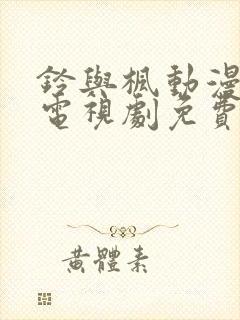 鈴與楓動漫
電視劇免費
黃體素